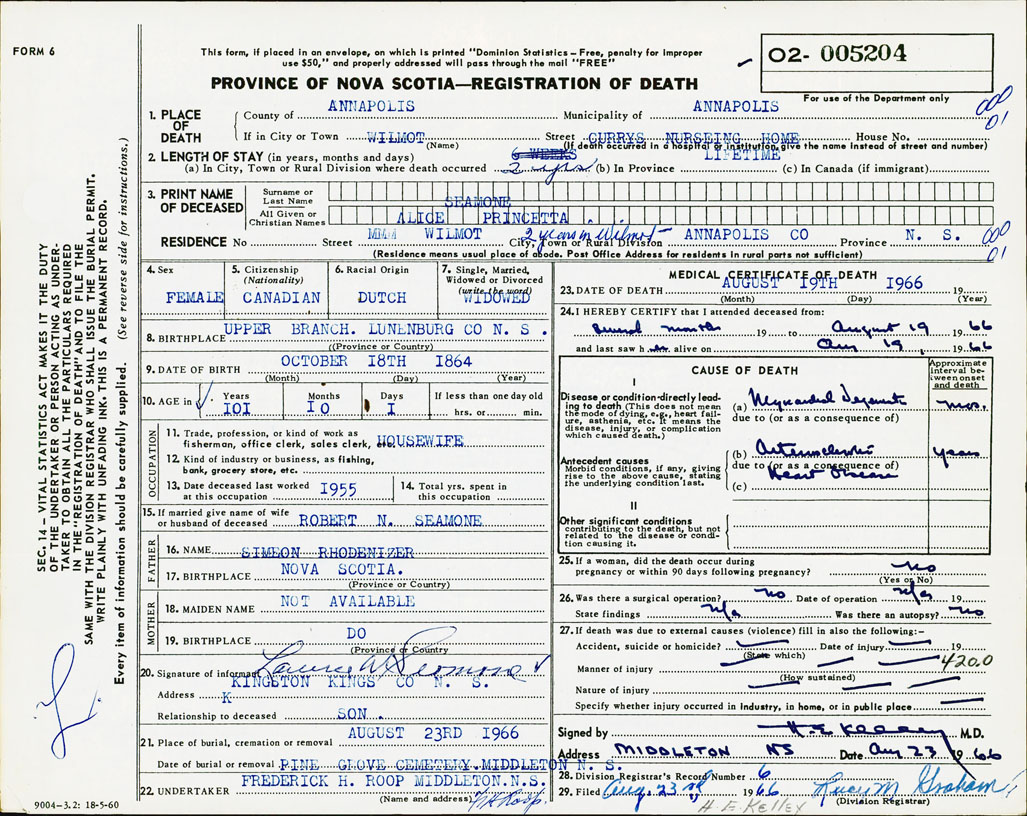 FORM 6
This form, if placed in an envelope, on which is printed "Dominion Statistics – Free, penalty for improper
use $50," and properly addressed will pass through the mail "FREE"
O2- 005204
PROVINCE OF NOVA SCOTIA—REGISTRATION OF DEATH
For use of the Department only
1. PLACE OF DEATH
County of ANNAPOLIS Municipality of ANNAPOLIS
If in City or Town WILMOT Street CURRYS NURSEING HOME House No.
(Name) (If death occurred in a hospital or institution, give the name instead of street and number)
2. LENGTH OF STAY (in years, months and days) 6 WEEKS LIFETIME
(a) In City, Town or Rural Division where death occurred 2 yrs (b) In Province (c) In Canada (if immigrant)
3. PRINT NAME OF DECEASED
Surname or Last Name SEAMONE
All Given or Christian Names ALICE PRINCETTA .
RESIDENCE No Street WILMOT 2 years in Wilmot City, Town or Rural Division ANNAPOLIS CO Province N. S.
(Residence means usual place of abode. Post Office Address for residents in rural parts not sufficient)
001
01
4. Sex
FEMALE
5. Citizenship (Nationality)
CANADIAN
6. Racial Origin
DUTCH
7. Single, Married, Widowed or Divorced (write the word)
WIDOWED
8. BIRTHPLACE UPPER BRANCH. LUNENBURG CO N. S .
(Province or Country)
9. DATE OF BIRTH OCTOBER I8TH I864
(Month) (Day) (Year)
10. AGE in
Years Months Days If less than one day old
IOI IO I hrs. or min.
OCCUPATION
11. Trade, profession, or kind of work as fisherman, office clerk, sales clerk, etc. HOUSEWIFE
12. Kind of industry or business, as fishing, bank, grocery store, etc.
13. Date deceased last worked at this occupation I955
14. Total yrs. spent in this occupation
15. If married give name of wife or husband of deceased ROBERT N. SEAMONE
FATHER
16. NAME SIMEON RHODENIZER
17. BIRTHPLACE NOVA SCOTIA.
(Province or Country)
MOTHER
18. MAIDEN NAME NOT AVAILABLE
19. BIRTHPLACE DO
(Province or Country)
20. Signature of informant
Address KINGSTON KINGS CO N. S.
K
Relationship to deceased SON .
21. Place of burial, cremation or removal AUGUST 23RD I966
Date of burial or removal PINE GROVE CEMETERY.MIDDLETON N. S.
22. UNDERTAKER FREDERICK H. ROOP MIDDLETON.N.S.
(Name and address)
9004–3.2: 18-5-60
MEDICAL CERTIFICATE OF DEATH
23. DATE OF DEATH AUGUST I9TH I966
(Month) (Day) (Year)
24. I HEREBY CERTIFY that I attended deceased from:
several months 19 to August 19 1966
and last saw her alive on Aug 19, 1966
CAUSE OF DEATH
Approximate interval between onset and death
I
Disease or condition directly leading to death (This does not mean the mode of dying, e.g., heart failure, asthenia, etc. It means the disease, injury, or complication which caused death.)
(a) Myocardial mos.
due to (or as a consequence of)
Antecedent causes
Morbid conditions, if any, giving rise to the above cause, stating the underlying condition last.
(b) Arteriosclerotic years
due to (or as a consequence of)
Heart Disease
(c)
II
Other significant conditions
contributing to the death, but not related to the disease or condition causing it.
25. If a woman, did the death occur during pregnancy or within 90 days following pregnancy? no
(Yes or No)
26. Was there a surgical operation? no Date of operation n/a 19
State findings n/a Was there an autopsy? no
27. If death was due to external causes (violence) fill in also the following:–
Accident, suicide or homicide? Date of injury 19
(State which) 420.0
Manner of injury
(How sustained)
Nature of injury
Specify whether injury occurred in industry, in home, or in public place
Signed by H. E. Kelley M.D.
Address MIDDLETON NS Date Aug 23 1966
28. Division Registrar's Record Number 6
29. Filed Aug. 23rd 1966 Graham
(Division Registrar)
H E Kelley
SEC. 14 – VITAL STATISTICS ACT MAKES IT THE DUTY
OF THE UNDERTAKER OR PERSON ACTING AS UNDER-
TAKER TO OBTAIN ALL THE PARTICULARS REQUIRED
IN THE "REGISTRATION OF DEATH" AND TO FILE THE
SAME WITH THE DIVISION REGISTRAR WHO SHALL ISSUE THE BURIAL PERMIT.
WRITE PLAINLY WITH UNFADING INK. THIS IS A PERMANENT RECORD.
Every item of information should be carefully supplied. (See reverse side for instructions.)